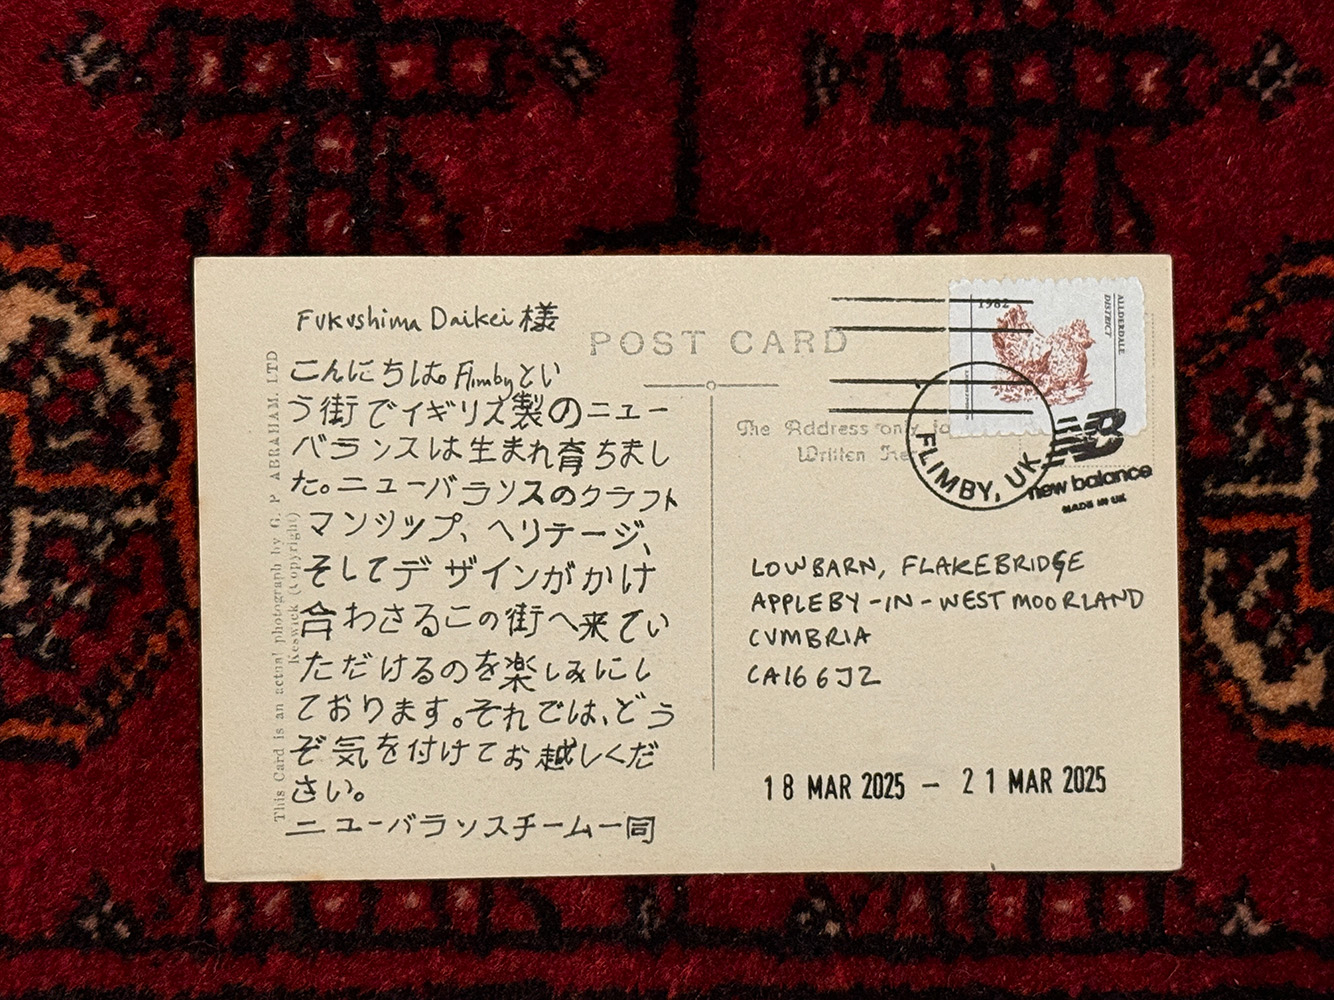 Fukushima Daikei 様
こんにちは。Flimbyとい
う街でイギリス製のニュー
バランスは生まれ育ちまし
た。ニューバランスのクラフト
マンシップ、ヘリテージ、
そしてデザインがかけ
合わさるこの街へ来てい
ただけるのを楽しみにし
ております。それでは、どう
ぞ気を付けてお越しくだ
さい。
ニューバランスチーム一同
This Card is an actual photograph by G. P. ABRAHAM. LTD
Keswick (Copyright)
POST CARD
The Address only to
Written Here
1982
ALLDERDALE
DISTRICT
FLIMBY, UK
new balance
MADE IN UK
LOWBARN, FLAKEBRIDGE
APPLEBY-IN-WESTMOORLAND
CUMBRIA
CA16 6JZ
18 MAR 2025 — 21 MAR 2025